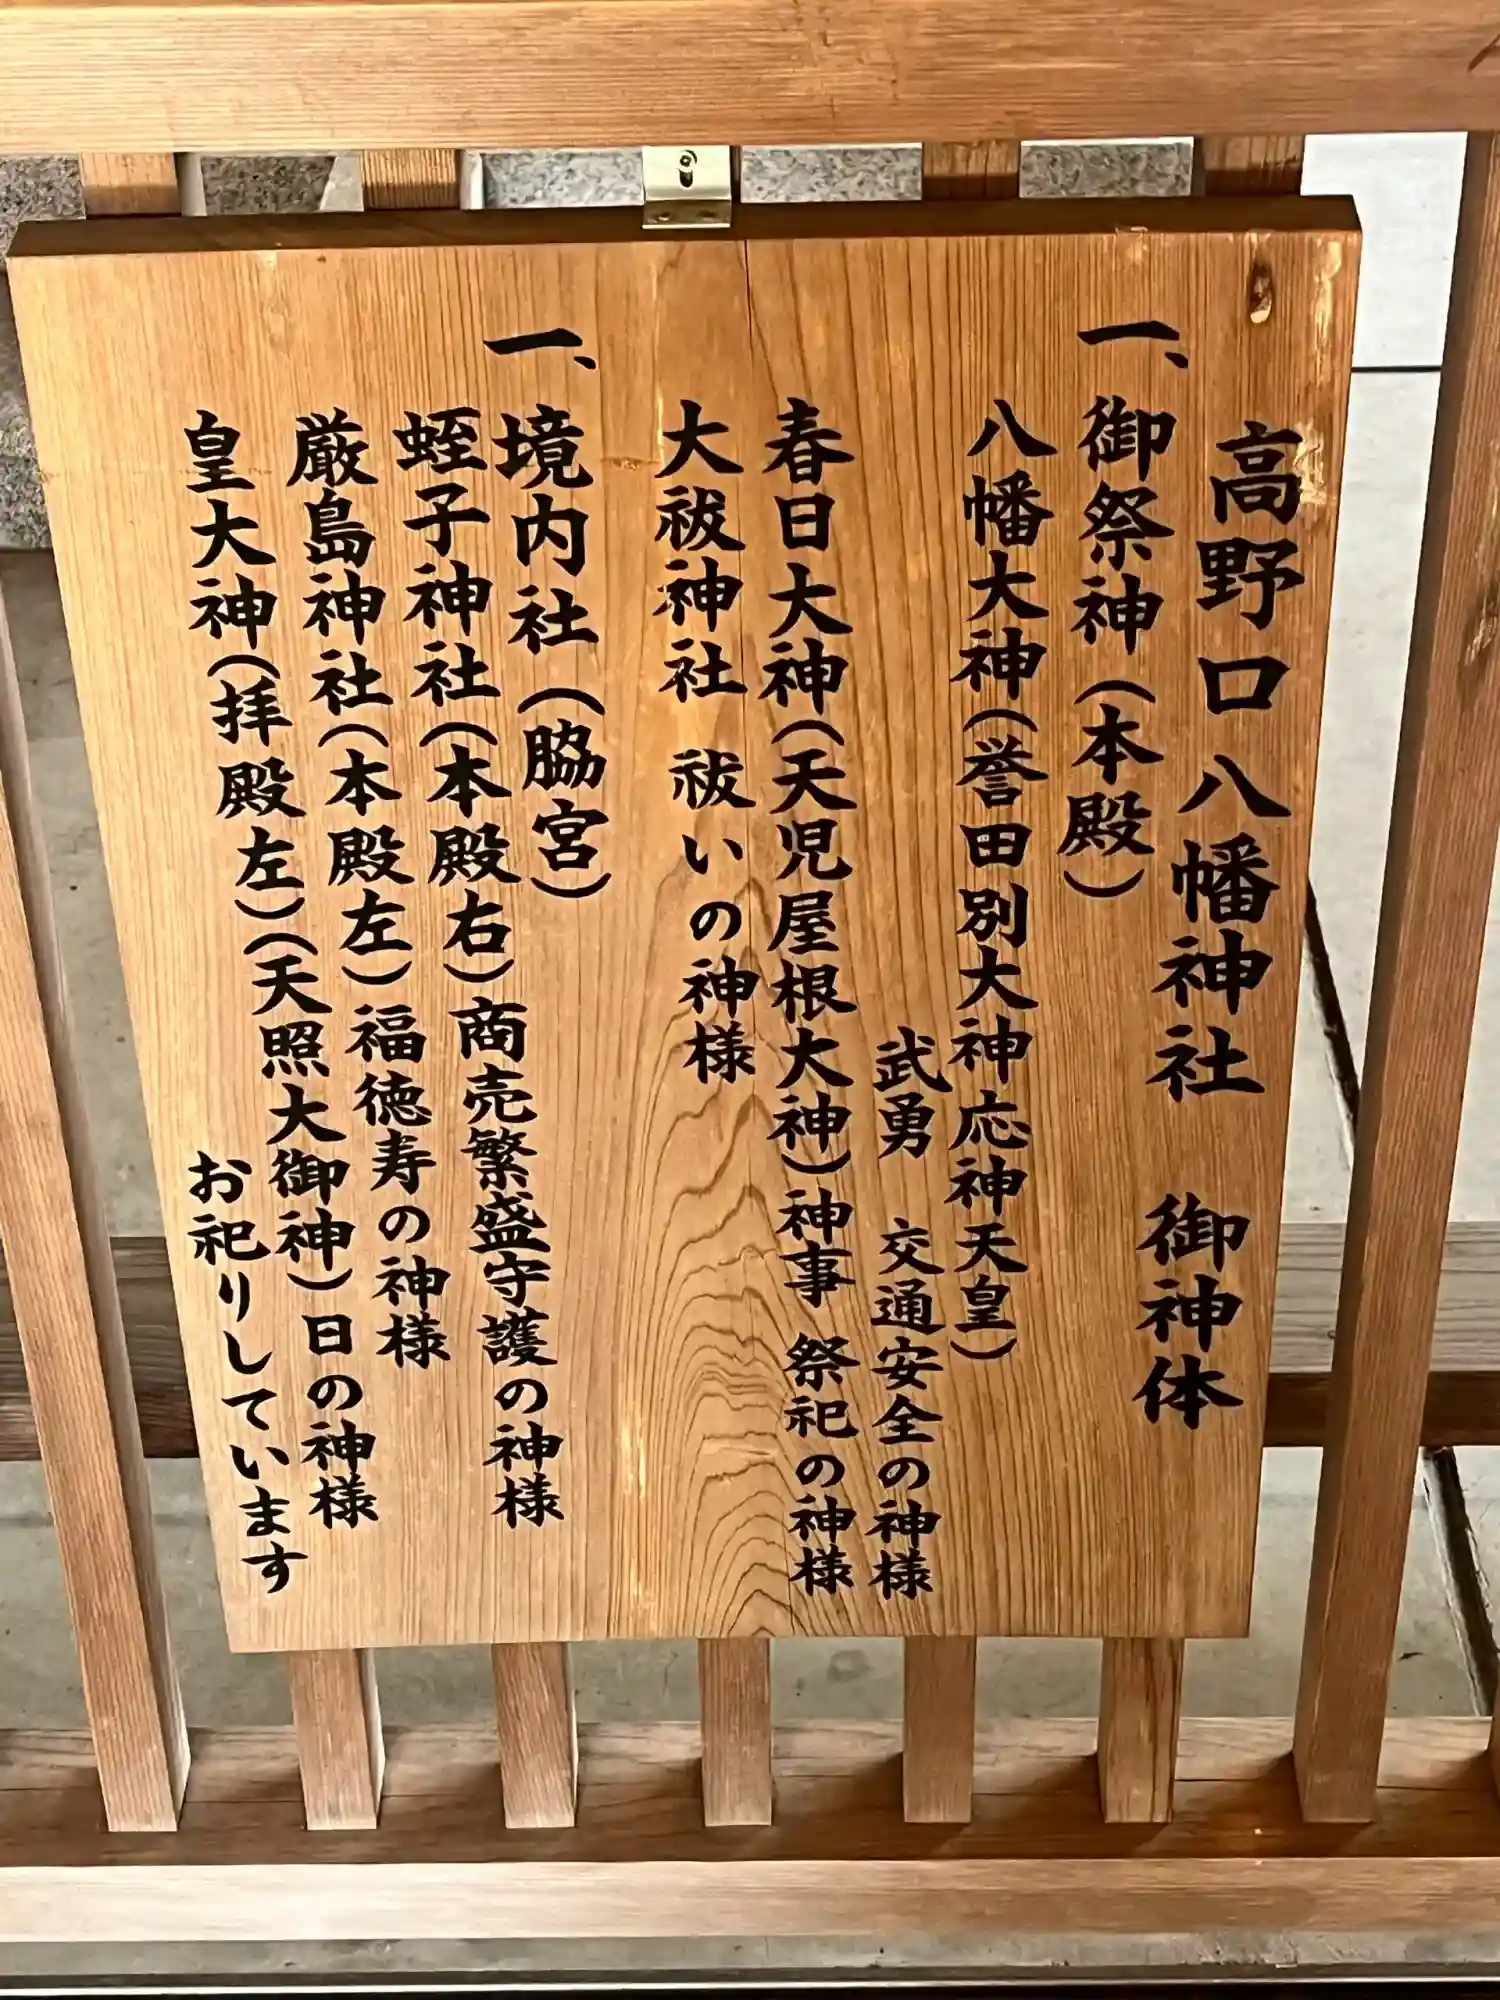 高野口八幡神社 御神体
一、御祭神（本殿）
八幡大神（誉田別大神応神天皇）
武勇 交通安全の神様
春日大神（天児屋根大神）神事 祭祀の神様
大祓神社 祓いの神様
一、境内社（脇宮）
蛭子神社（本殿右）商売繁盛守護の神様
厳島神社（本殿左）福徳寿の神様
皇大神（拝殿左）（天照大御神）日の神様
お祀りしています